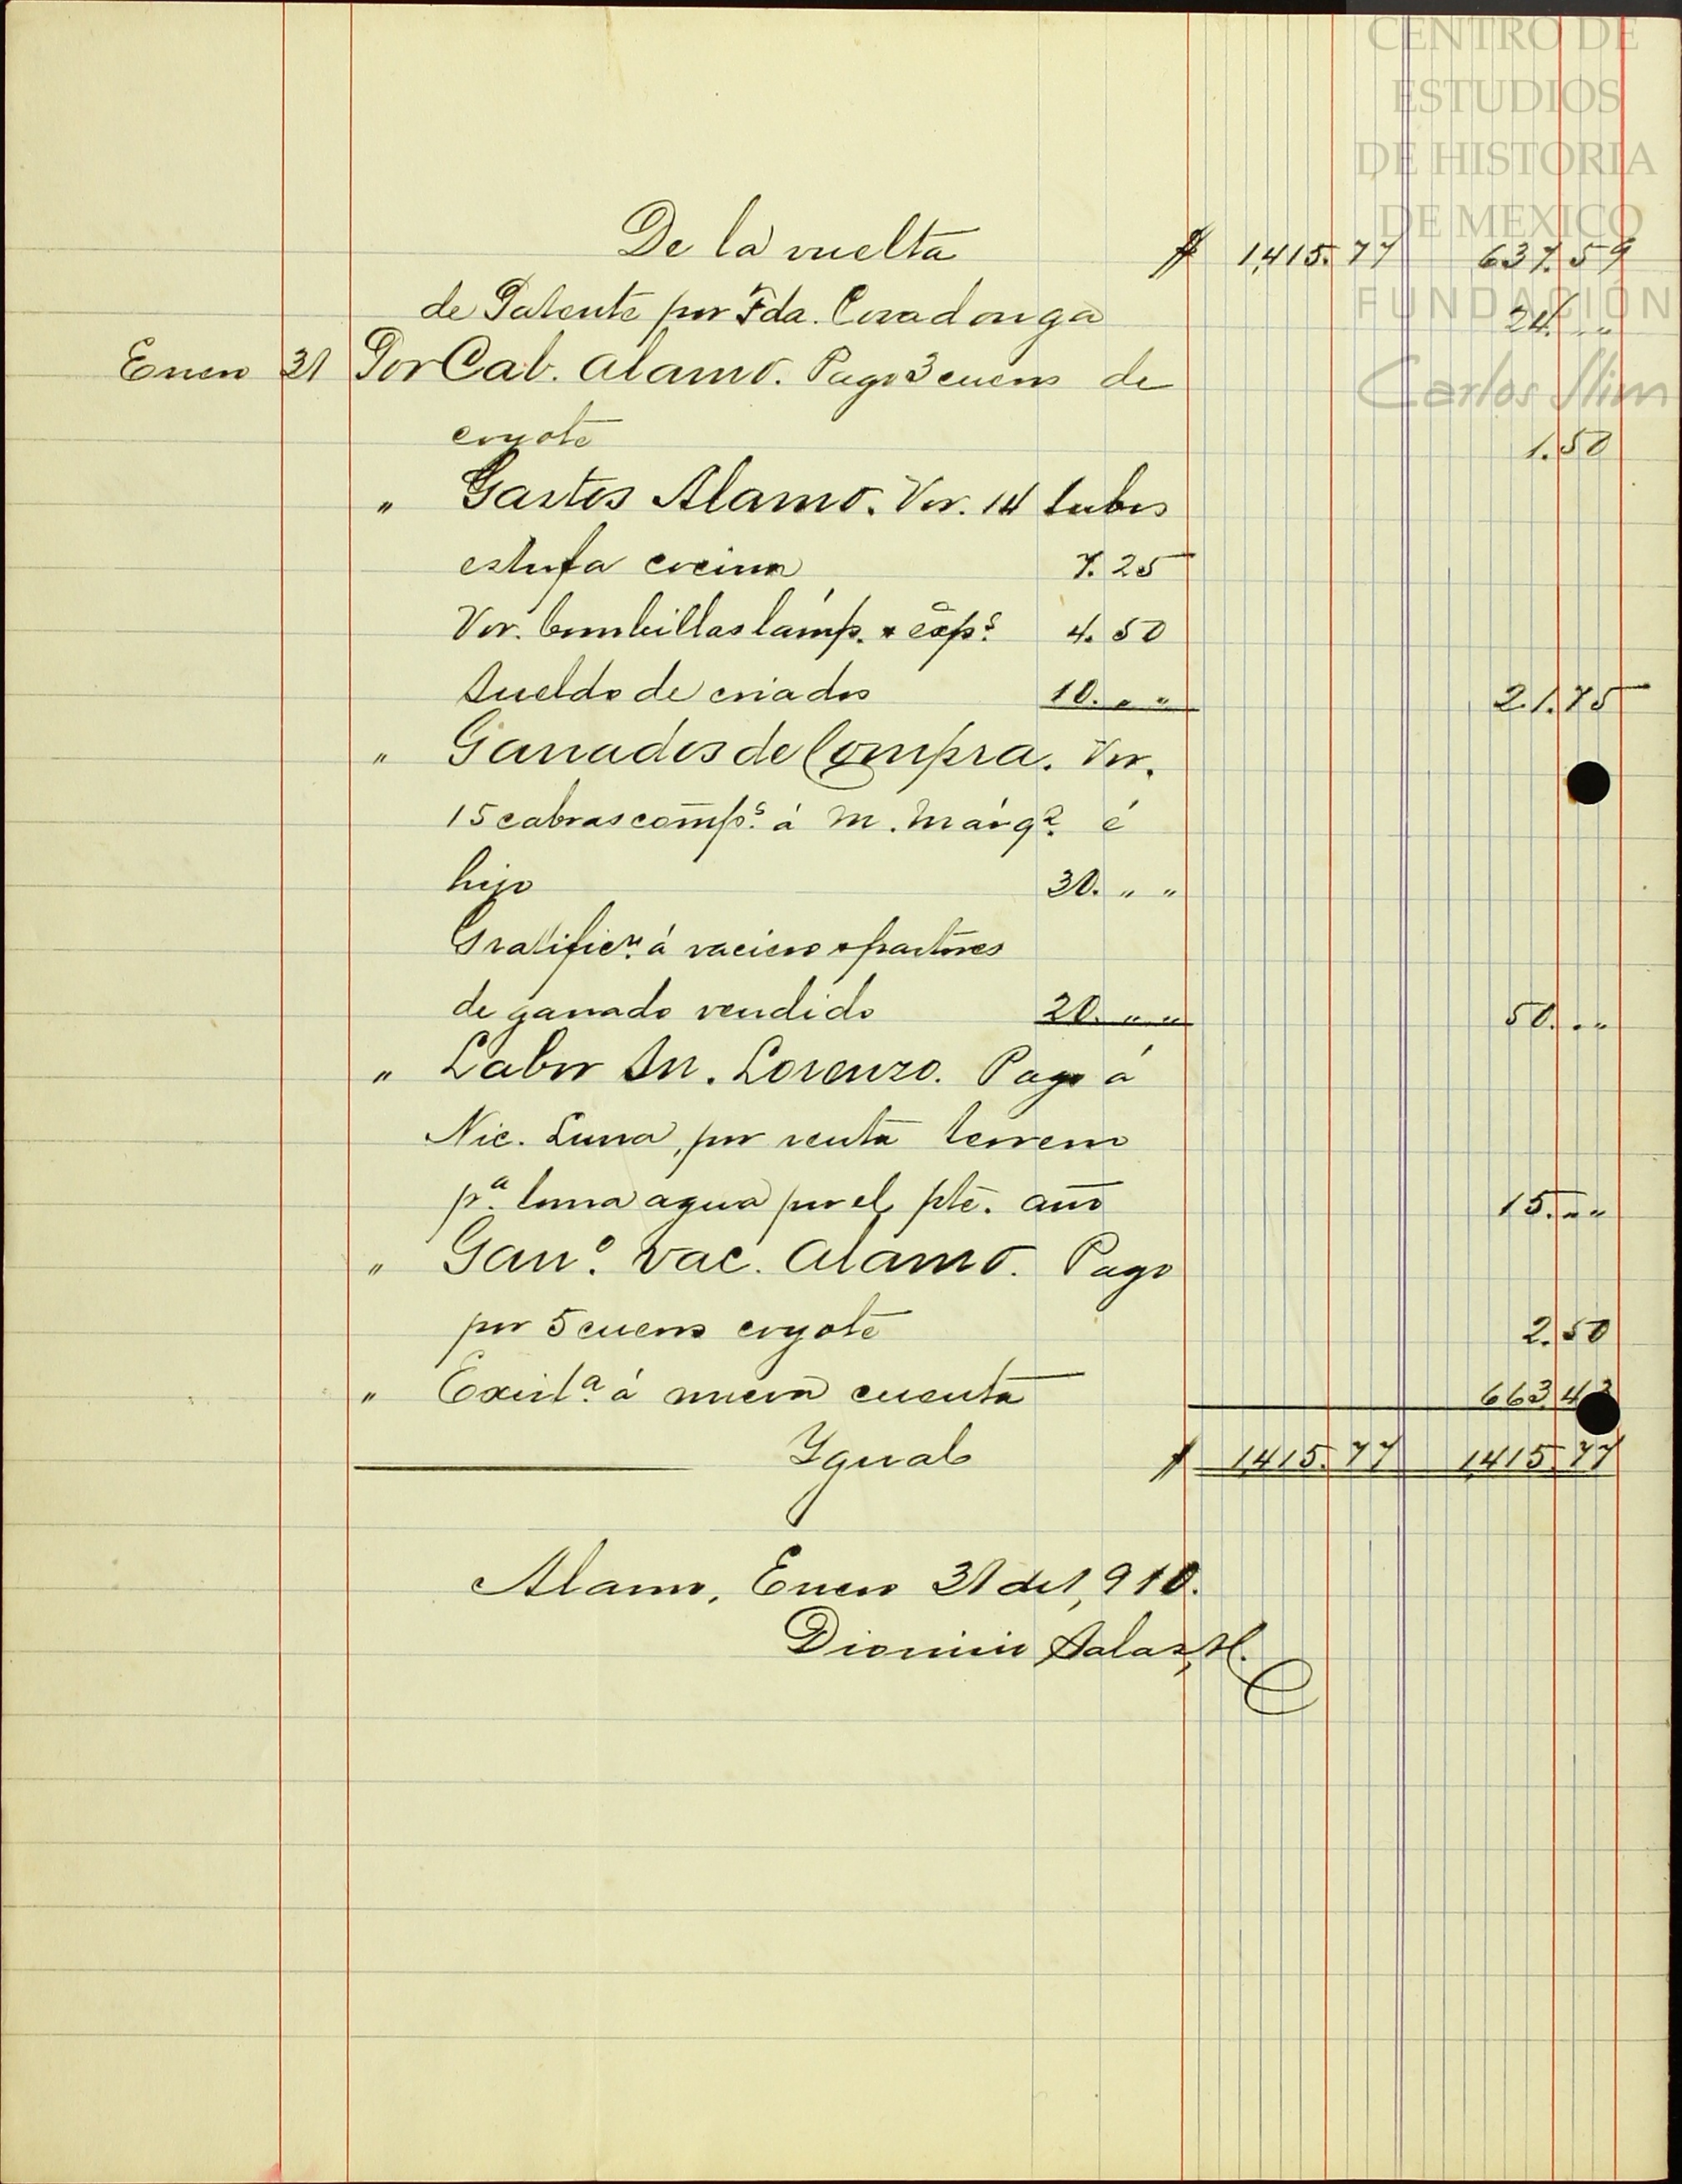 CENTRO DE
ESTUDIOS
DE HISTORIA
DE MEXICO
FUNDACIÓN
Carlos Slim
De la vuelta $ 1,415.77 637.59
de Patente por Tda. Covadonga 24. „ „
Enero 31 Por Cab. Alamo. Pago 3 cueros de
coyote 1.50
„ Gastos Alamo. Vor. 14 tubos
estufa cocina 7.25
Vor. bombillas lámp. * exps. 4.50
Sueldo de criados 10. „ „ 21.75
„ Ganados de Compra. Vor.
15 cabras comps. á M. Márqz. é
hijo 30. „ „
Gratificn. á vaciero * pastores
de ganado vendido 20. „ „ 50. „ „
„ Labor Sn. Lorenzo. Pago á
Nic. Luna, por renta terreno
pa. toma agua por el pte. año 15. „ „
„ Gano. vac. Alamo. Pago
por 5 cueros coyote 2.50
„ Exista. á nueva cuenta 663.43
Ygual $ 1,415.77 1,415.77
Alamo, Enero 31 de 1,910.
Dionisio Salas, H.